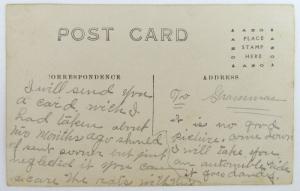 POST CARD
PLACE
STAMP
HERE
CORRESPONDENCE
ADDRESS
I will send you
a card wich I
had taken about
two months ago should
of sent sooner but just
neglected it you can
scare the rats with
To Grammas
it is no good
picture some down
I will take you
an automobile ride
it goes dandy